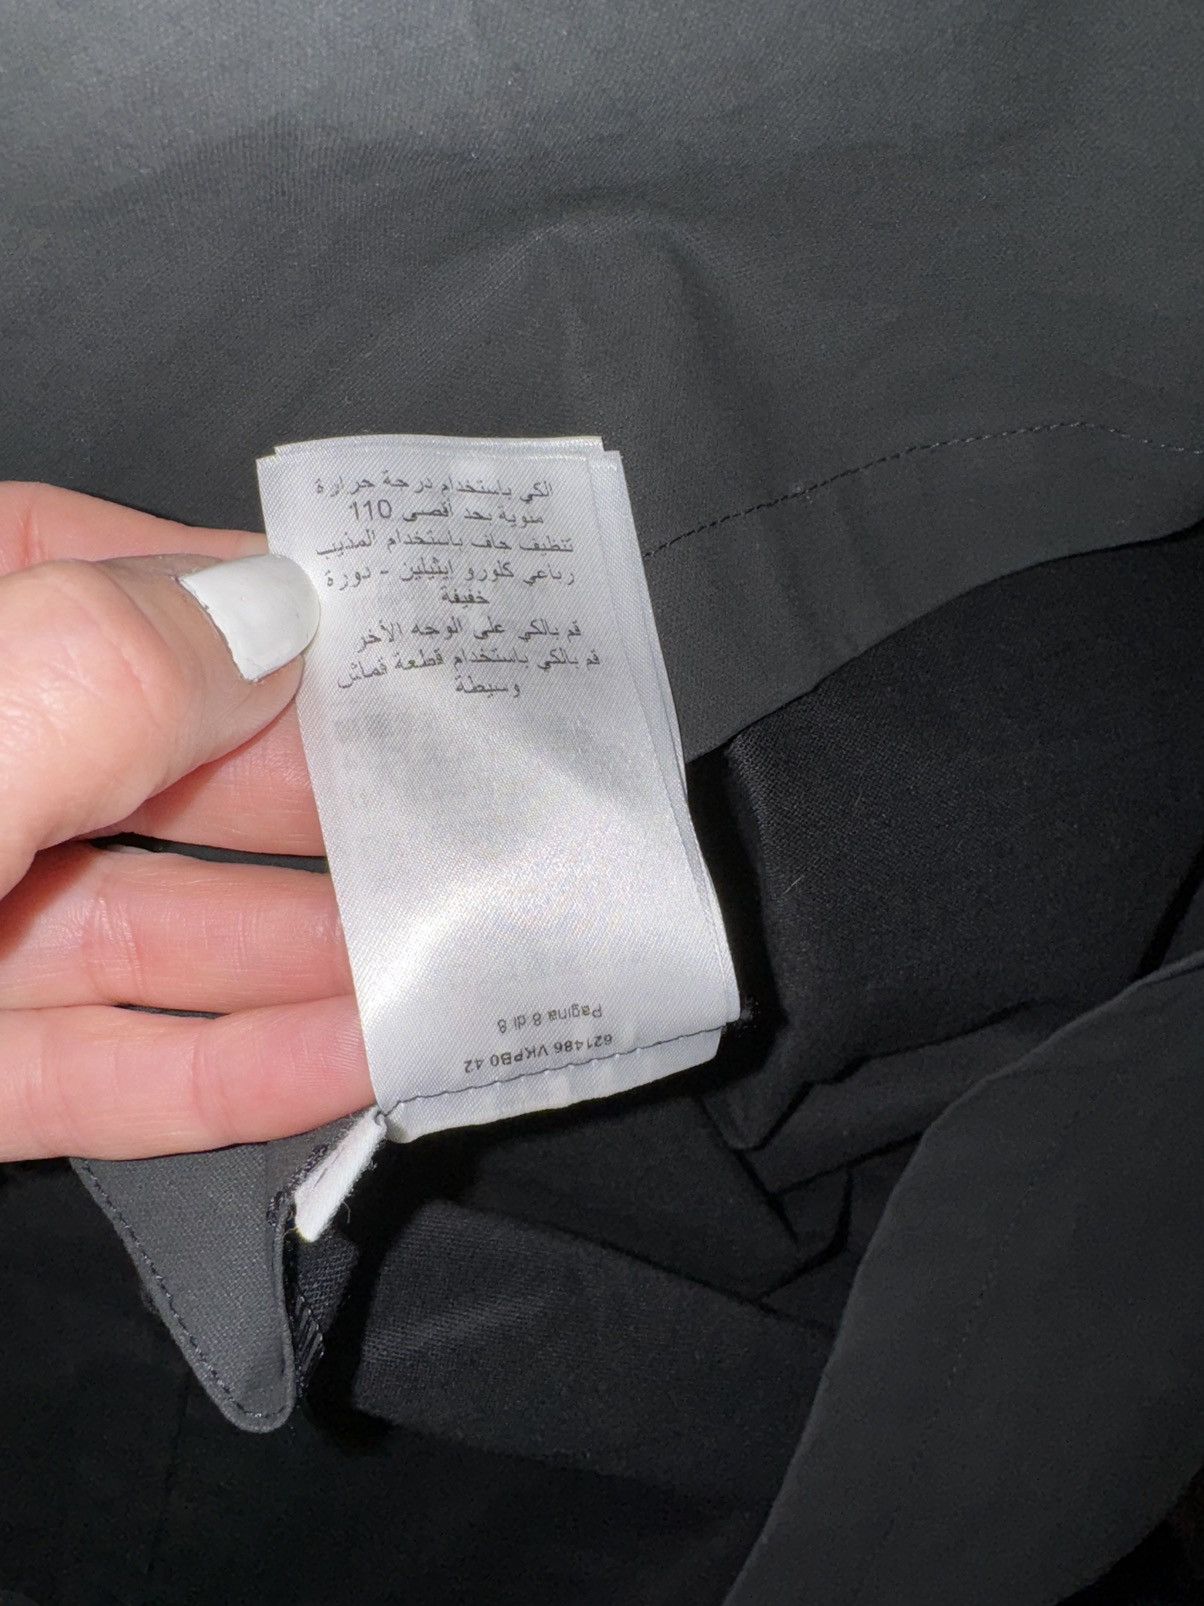 الكي باستخدام درجة حرارة
مئوية بحد أقصى 110
تنظيف جاف باستخدام المذيب
رباعي كلورو ايثيلين - دورة
خفيفة
قم بالكي على الوجه الآخر
قم بالكي باستخدام قطعة قماش
وسيطة
Pagina 8 di 8
621486 VKPB0 42